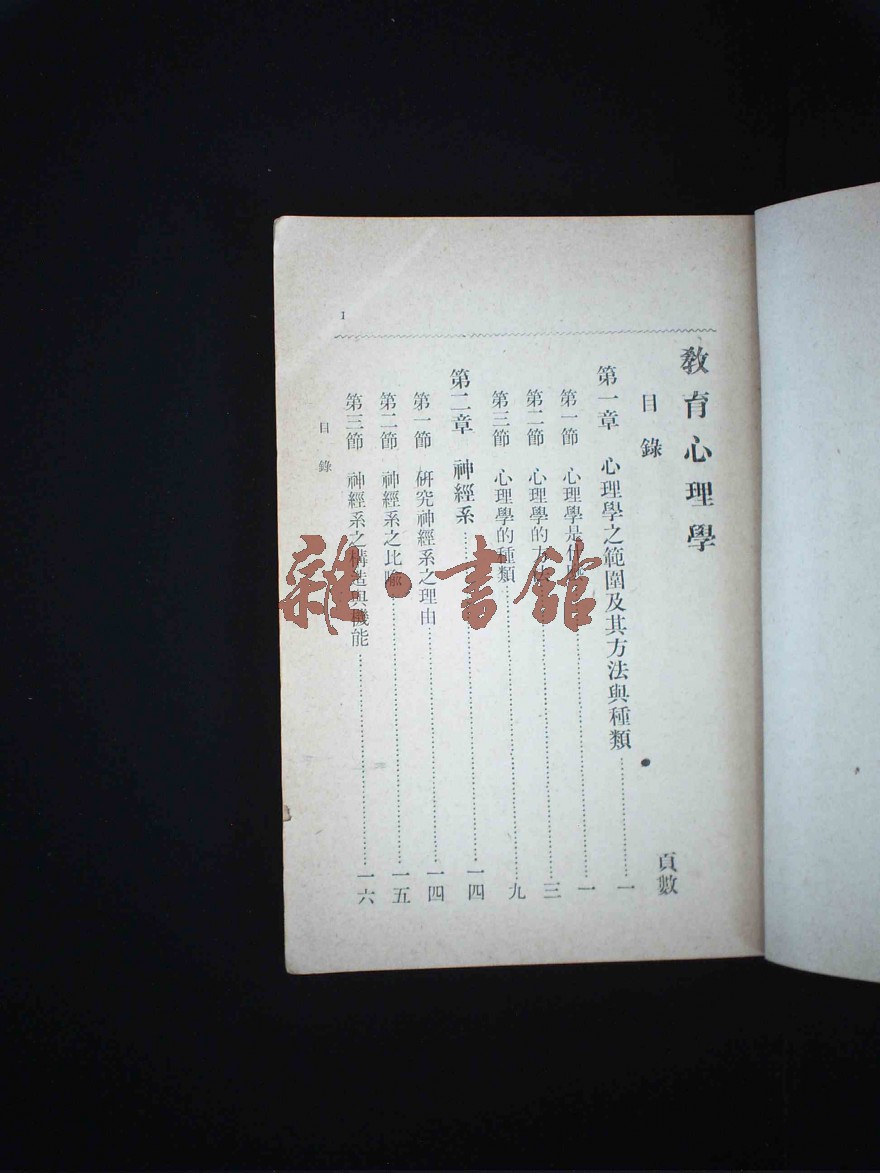 教育心理學
目錄
頁數
第一章 心理學之範圍及其方法與種類……一
第一節 心理學是什麼……一
第二節 心理學的方法……三
第三節 心理學的種類……九
第二章 神經系……一四
第一節 研究神經系之理由……一四
第二節 神經系之比喻……一五
第三節 神經系之構造與機能……一六
目錄
1
雜·書館